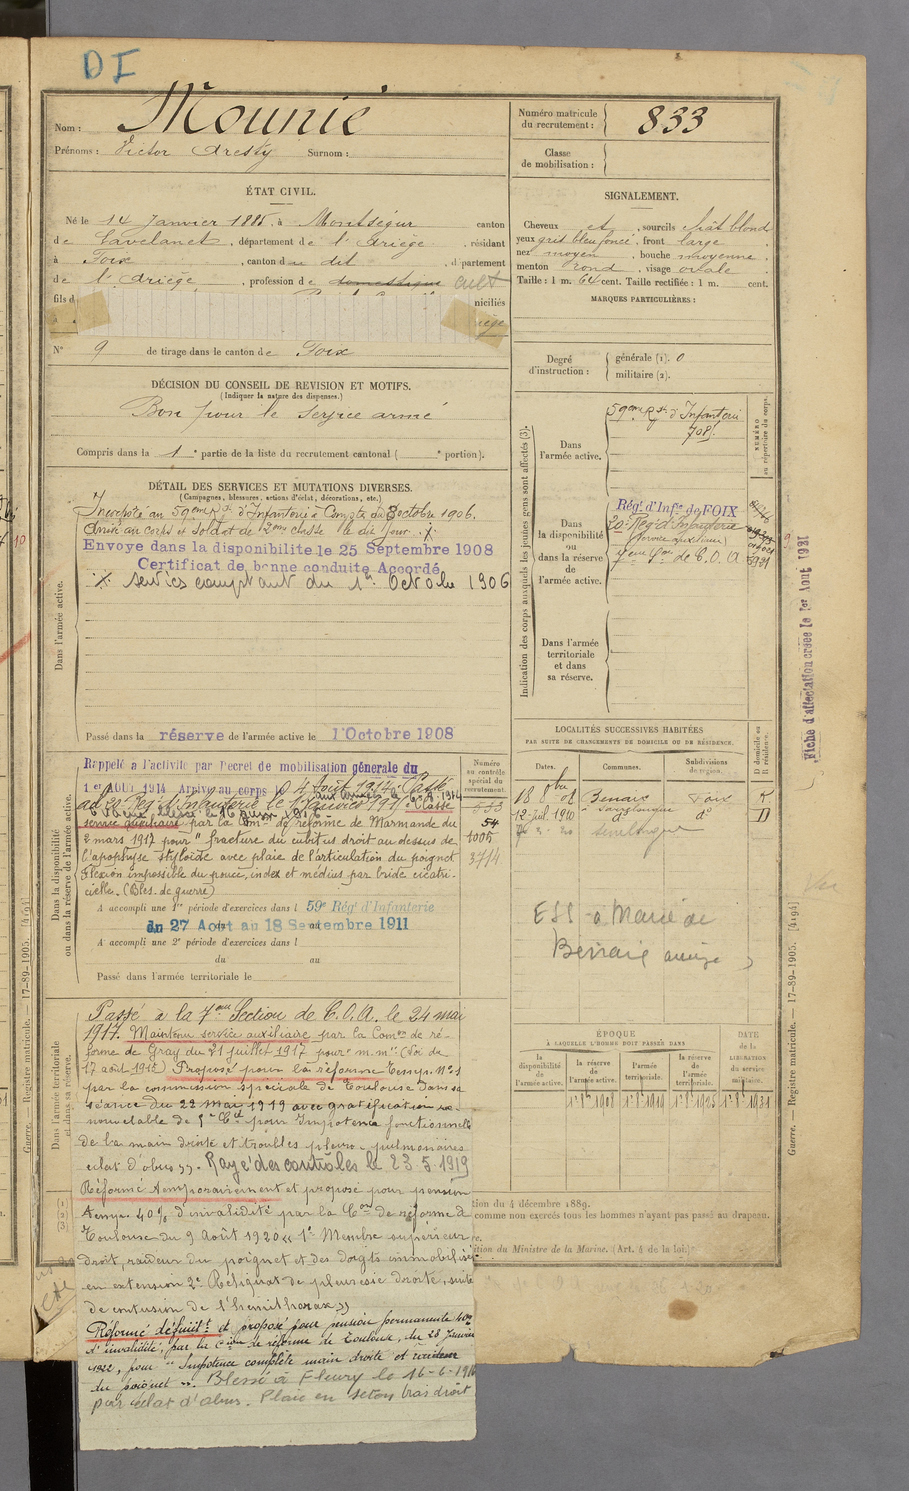 DI
Nom : Mounié
Prénoms : Victor Aresty Surnom :
Numéro matricule du recrutement : 833
Classe de mobilisation :
ÉTAT CIVIL.
Né le 14 Janvier 1885, à Montségur canton
de Lavelanet, département de l'Ariège, résidant
à Foix, canton du dit, d partement
de l'Ariège, profession de domestique cult
fils d niciliés
iège
N° 9 de tirage dans le canton de Foix
SIGNALEMENT.
Cheveux et, sourcils chât blond
yeux gris bleu foncé, front large
nez moyen, bouche moyenne
menton rond, visage ovale
Taille : 1 m. 64 cent. Taille rectifiée : 1 m. cent.
MARQUES PARTICULIÈRES :
Degré d'instruction : générale (1). 0
militaire (2).
DÉCISION DU CONSEIL DE REVISION ET MOTIFS.
(Indiquer la nature des dispenses.)
Bon pour le service armé
Compris dans la 1e partie de la liste du recrutement cantonal ( e portion).
DÉTAIL DES SERVICES ET MUTATIONS DIVERSES.
(Campagnes, blessures, actions d'éclat, décorations, etc.)
Dans l'armée active.
Incorporé au 59eme Rgt d'Infanterie à Compter du 8 octobre 1906.
Arrivé au corps et soldat de 2eme classe le dit jour. X
Envoye dans la disponibilite le 25 Septembre 1908
Certificat de bonne conduite Accordé
X services comptant du 1er Octobre 1906
Passé dans la réserve de l'armée active le 1'Octobre 1908
Indication des corps auxquels les jeunes gens sont affectés (3).
Dans l'armée active.
59eme Rgt d'Infanterie
7081
NUMÉRO au répertoire du corps.
Dans la disponibilité ou dans la réserve de l'armée active.
Rég. d'Infie de FOIX
20e Rég d'Infanterie
(Service auxiliaire)
7eme Son de C.O.A
Dans l'armée territoriale et dans sa réserve.
Fiche d'affectation créée le 1er Aout 1921
LOCALITÉS SUCCESSIVES HABITÉES
PAR SUITE DE CHANGEMENTS DE DOMICILE OU DE RÉSIDENCE.
Dates. Communes. Subdivisions de région. D domicile ou R résidence.
18 8bre 08 Benaix Foix R
12 juil 1910 do do D
ESS à Marie de
Benaix
Dans la disponibilité ou dans la réserve de l'armée active.
Numéro au contrôle spécial du recrutement.
533
54
1005
3714
Rappelé a l'activité par Decret de mobilisation générale du
1er Août 1914 Arrivé au corps le 4 Août 1914. Passé
au Rég d'Infanterie le 1 Janvier 1916. Classé
service auxiliaire par la Com on de réforme de Marmande du
2 mars 1917 pour "fracture du cubitus droit au dessus de
l'apophyse styloïde avec plaie de l'articulation du poignet
flexion impossible du pouce, index et médius par bride cicatri-
cielle. (Bles. de guerre)
A accompli une 1re période d'exercices dans l 59e Rég' d'Infanterie
du 27 Aout au 18 Septembre 1911
A accompli une 2e période d'exercices dans l
du au
Passé dans l'armée territoriale le
Dans l'armée territoriale et dans sa réserve.
Passé à la 7eme Section de C.O.A. le 24 mai
1917. Maintenu service auxiliaire par la Comon de ré-
forme de Gray du 21 juillet 1917 pour m. m. (Loi du
17 août 1915) Proposé pour la réforme Temp. N°1
par la commission spéciale de Toulouse dans sa
séance du 22 mai 1919 avec gratification re-
nouvelable de 5e Cie pour Impotence fonctionnelle
de la main droite et troubles pleuro-pulmonaires
éclat d'obus ». Rayé des contrôles le 23.5.1919
Réformé temporairement et proposé pour pension
temp. 40% d'invalidité par la Con de réforme de
Toulouse du 9 Août 1920 « 1° Membre supérieur
droit, raideur du poignet et des doigts immobilisés
en extension 2° Reliquat de pleurésie droite, suite
de contusion de l'hémithorax »
Réformé définitt et proposé pour pension permanente 40%
d'invalidité, par la Cion de réforme de Toulouse, du 23 Janvier
1922, pour "Impotence complète main droite et raideur
du poignet". Blessé à Fleury le 16-6-1916
par éclat d'obus. Plaie en seton bras droit
ÉPOQUE
À LAQUELLE L'HOMME DOIT PASSER DANS
la disponibilité de l'armée active. la réserve de l'armée active. l'armée territoriale. la réserve de l'armée territoriale. DATE de la LIBÉRATION du service militaire.
1er 8bre 1908 1er 8bre 1919 1er 8bre 1925 1er 8bre 1931
tion du 4 décembre 1889.
comme non exercés tous les hommes n'ayant pas passé au drapeau.
tion du Ministre de la Marine. (Art. 4 de la loi.)
(1)
(2)
(3)
Guerre. — Registre matricule. — 17-89-1905. [4194]
Guerre. — Registre matricule. — 17-89-1905. [4194]